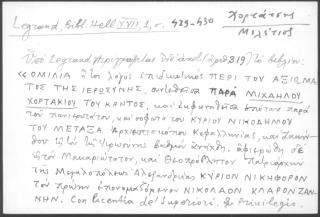 Legrand, Bibl. Hell. XVII, 1, σ. 429-430
Χορτάτσης
Μιλέτιος
Ὑπὸ Legrand περιγράφεται ἀριθ. 319) τὸ βιβλίον:
«ΟΜΙΛΙΑ ἤτοι λόγος ΠΕΡΙ ΤΟΥ ΑΞΙΩΜΑ
ΤΟΣ ΤΗΣ ΙΕΡΩΣΥΝΗΣ, συντεθεῖσα ΠΑΡΑ ΜΙΧΑΗΛΟΥ
ΧΟΡΤΑΚΙΟΥ ΤΟΥ ΚΡΗΤΟΣ, καὶ ἐκφωνηθεῖσα παρὰ
τοῦ καὶ σοφωτάτου ΚΥΡΙΟΥ ΝΙΚΟΔΗΜΟΥ
ΤΟΥ ΜΕΤΑΞΑ Ἀρχιεπισκόπου Κεφαλληνίας, καὶ Ζακύν-
θου ἀφιερώθη δὲ
εἰς τὸν Μακαριώτατον, καὶ Θεοπρόβλητον Πατριάρχην
τῆς Μεγαλοπόλεως Ἀλεξανδρείας ΚΥΡΙΟΝ ΝΙΚΗΦΟΡΟΝ
τὸν πρώην ἐπονομαζόμενον ΝΙΚΟΛΑΟΝ ΚΛΑΡΟΝΖΑ-
ΝΗΝ. Con licentia de' Superiori, & Privilegio.